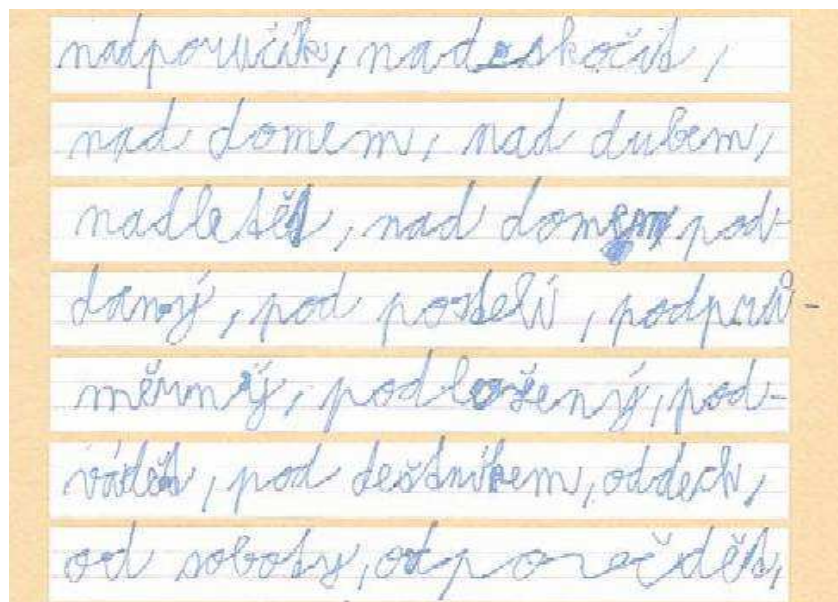 nadporučík, nadeskočit,
nad domem, nad dubem,
nadletět, nad domem, pod-
daný, pod postelí, podprů-
měrný, podložený, pod-
vádět, pod deštníkem, oddech,
od soboty, odporečděět,